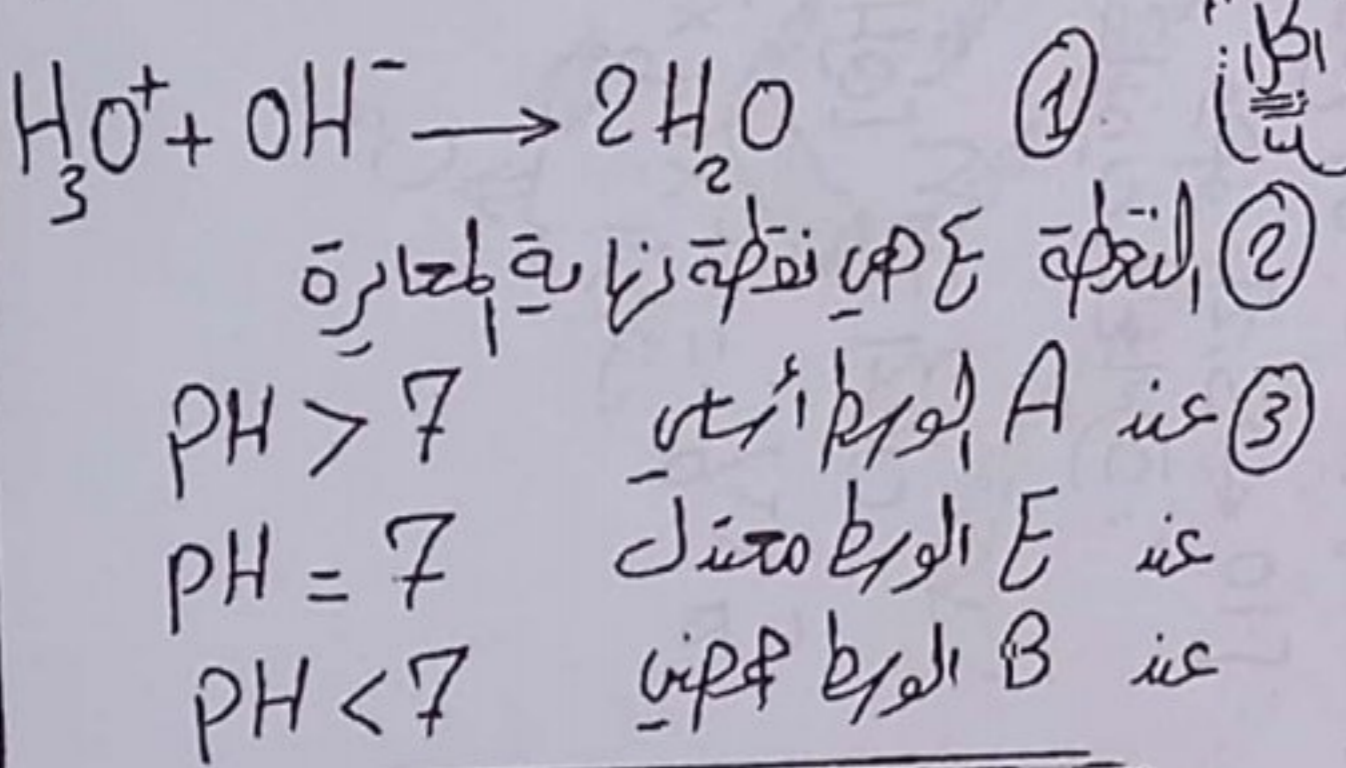 ① H₃O⁺ + OH⁻ → 2H₂O
② النقطة E هي نقطة نهاية المعايرة
③ عند A الوسط أساسي pH > 7
عند E الوسط معتدل pH = 7
عند B الوسط حمضي pH < 7